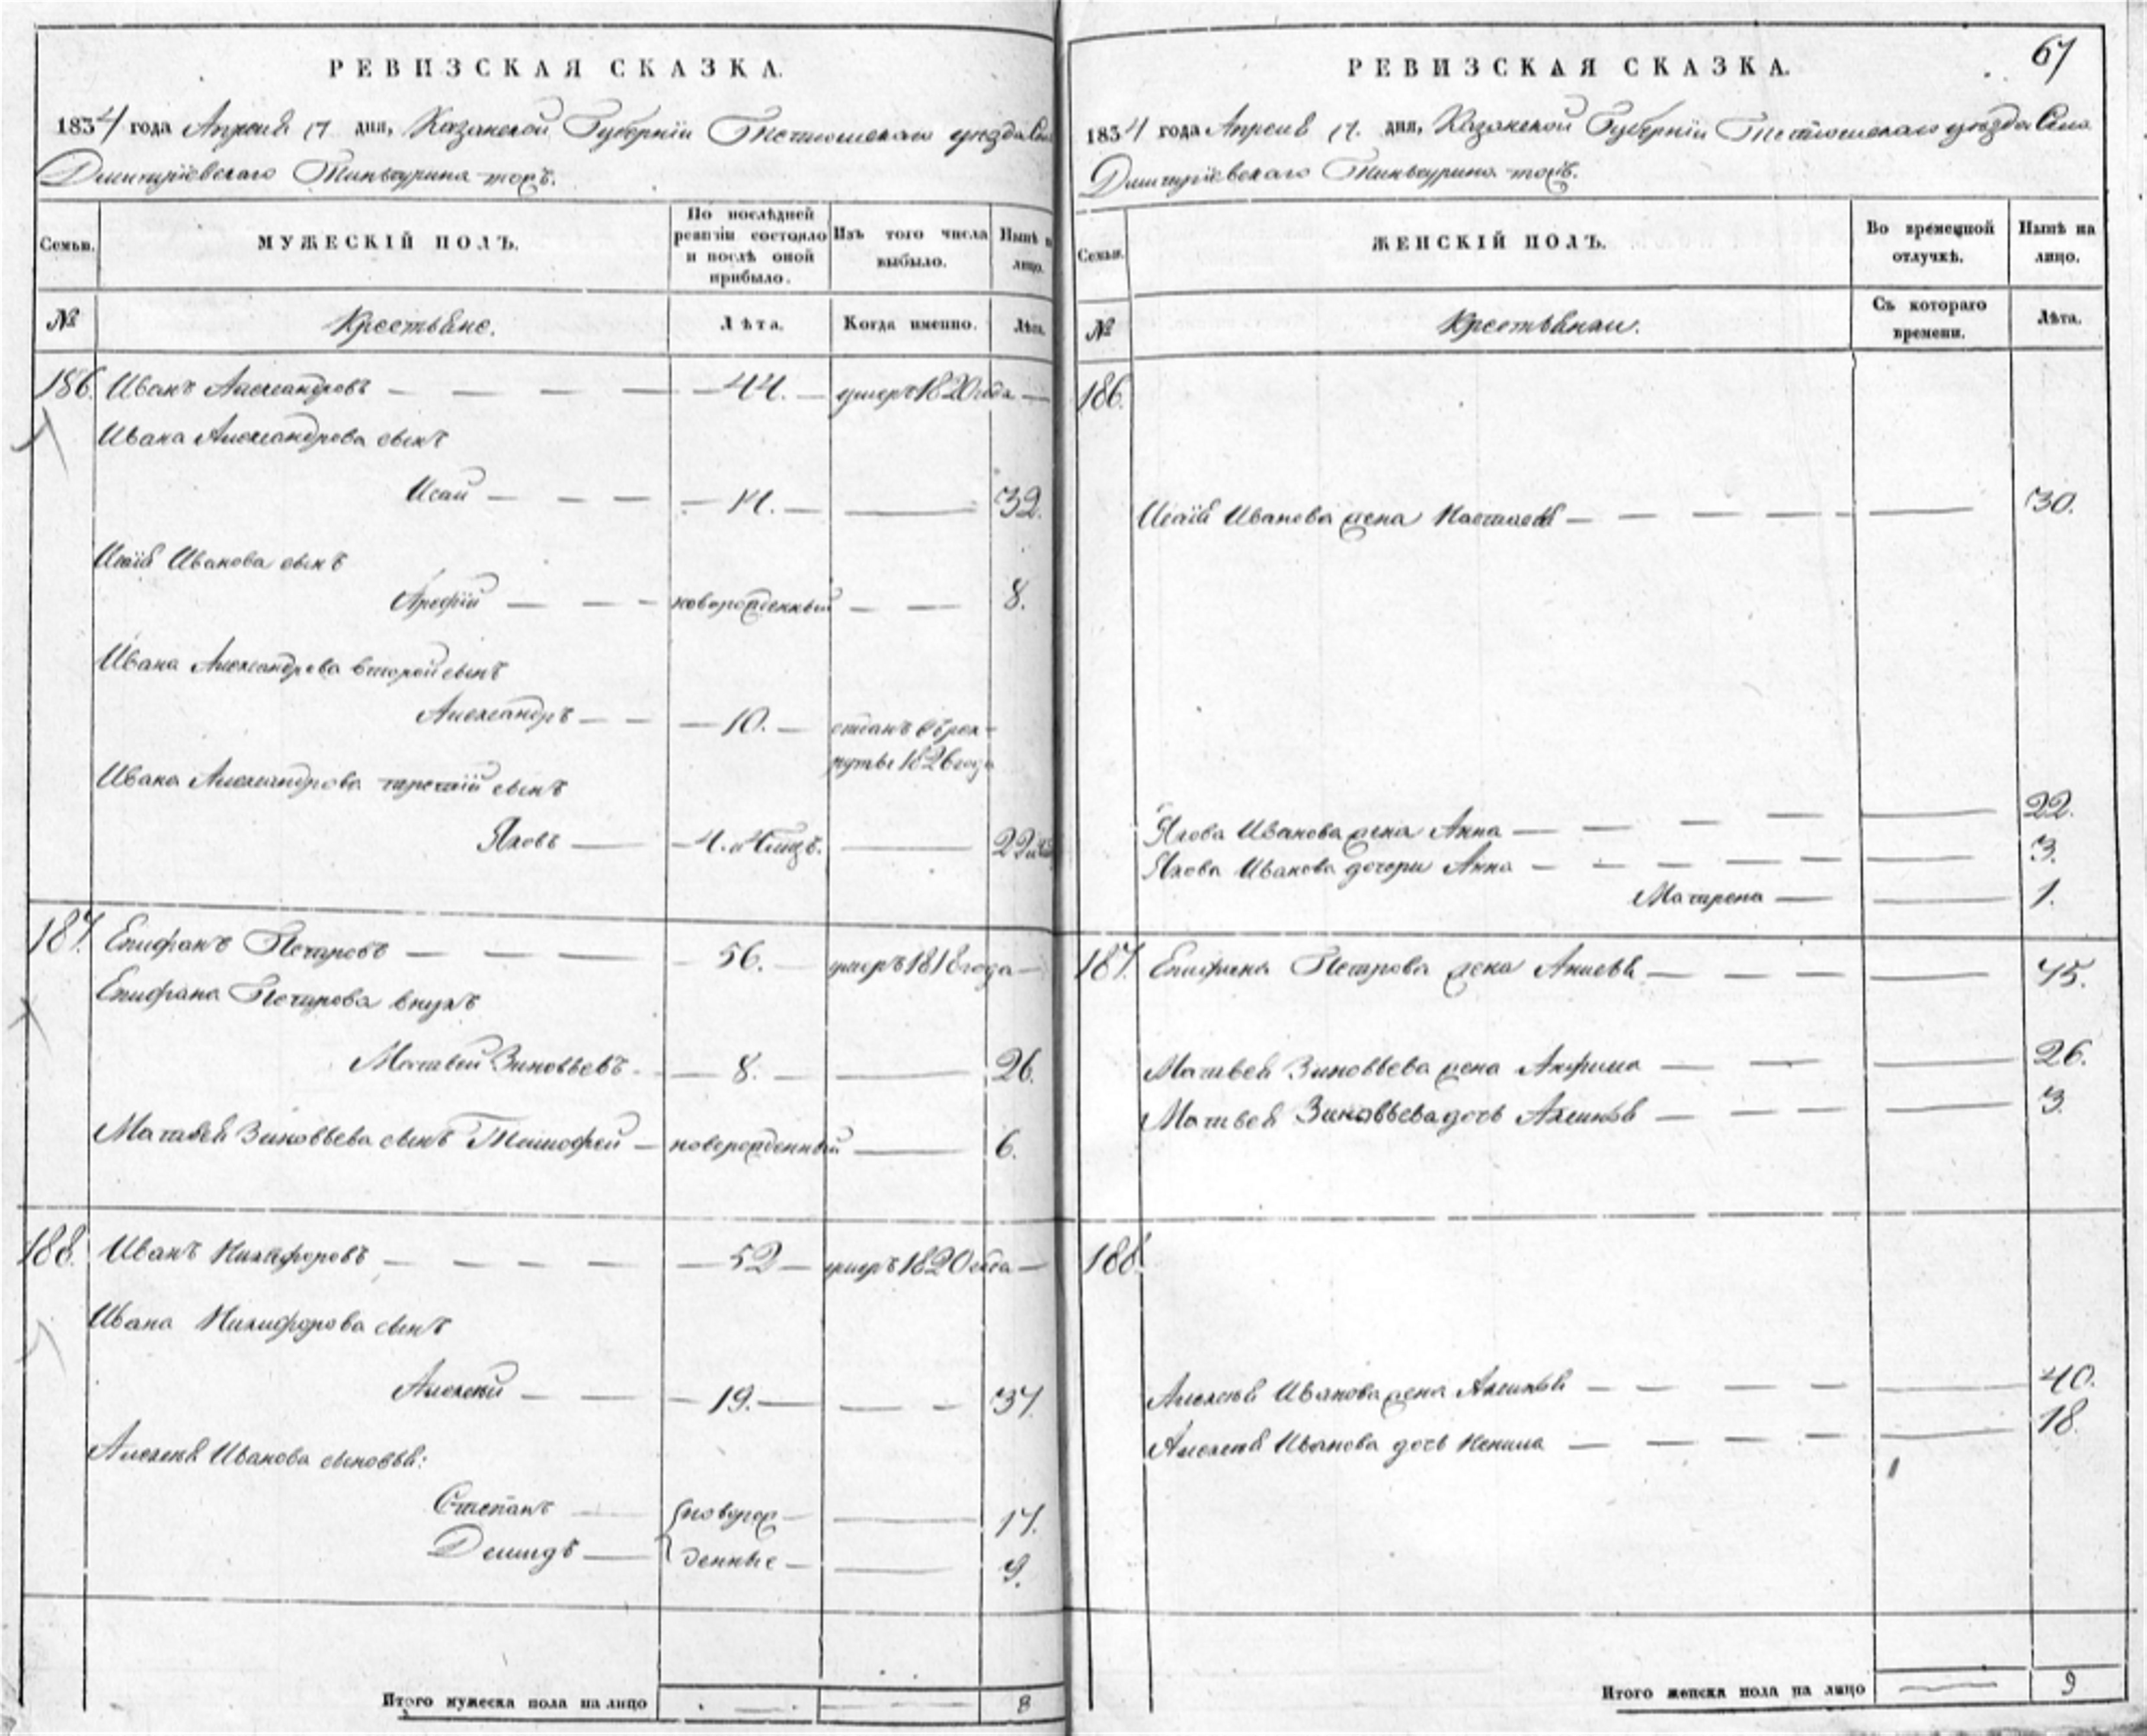 РЕВИЗСКАЯ СКАЗКА.
1834 года Апреля 17 дня, Казанской Губернiи Тетюшскаго уѣзда Села
Дмитрiевскаго Тинчурина тожъ.
Семьи.
МУЖЕСКIЙ ПОЛЪ.
По послѣдней ревизiи состояло и послѣ оной прибыло.
Изъ того числа выбыло.
Нынѣ на лицо.
№
Крестьяне.
Лѣта.
Когда именно.
Лѣта.
186. Иванъ Александровъ — 44. — умеръ 1820 года —
Ивана Александрова сынъ
Исай — 14. — 32.
Исаiя Иванова сынъ
Арефiй — новорожденный — 8.
Ивана Александрова второй сынъ
Александръ — 10. — отданъ въ рек-
руты 1826 года
Ивана Александрова третiй сынъ
Яковъ — 4. и 4 мцъ. — 22
187. Епифанъ Петровъ — 56. — умеръ 1818 года —
Епифана Петрова внукъ
Матвей Зиновьевъ — 8. — 26.
Матвея Зиновьева сынъ Тимофей — новорожденный — 6.
188. Иванъ Никифоровъ — 52 — умеръ 1820 года —
Ивана Никифорова сынъ
Алексей — 19. — 37.
Алексея Иванова сыновья:
Степанъ — новорож- — 17.
Демидъ — денные — 9.
Итого мужеска пола на лицо 8
67
РЕВИЗСКАЯ СКАЗКА.
1834 года Апреля 17. дня, Казанской Губернiи Тетюшскаго уѣзда Села
Дмитрiевскаго Тинчурина тожъ.
Семьи.
ЖЕНСКIЙ ПОЛЪ.
Во временной отлучкѣ.
Нынѣ на лицо.
№
Крестьянки.
Съ котораго времени.
Лѣта.
186.
Исаiя Иванова жена Настасья — 30.
Якова Иванова жена Анна — 22.
Якова Иванова дочери Анна — 3.
Матрена — 1.
187. Епифана Петрова жена — 45.
Матвея Зиновьева жена Анфима — 26.
Матвея Зиновьева дочь Аксинья — 3.
188.
Алексея Иванова жена Аксинья — 40.
Алексея Иванова дочь Ненила — 18.
Итого женска пола на лицо 9